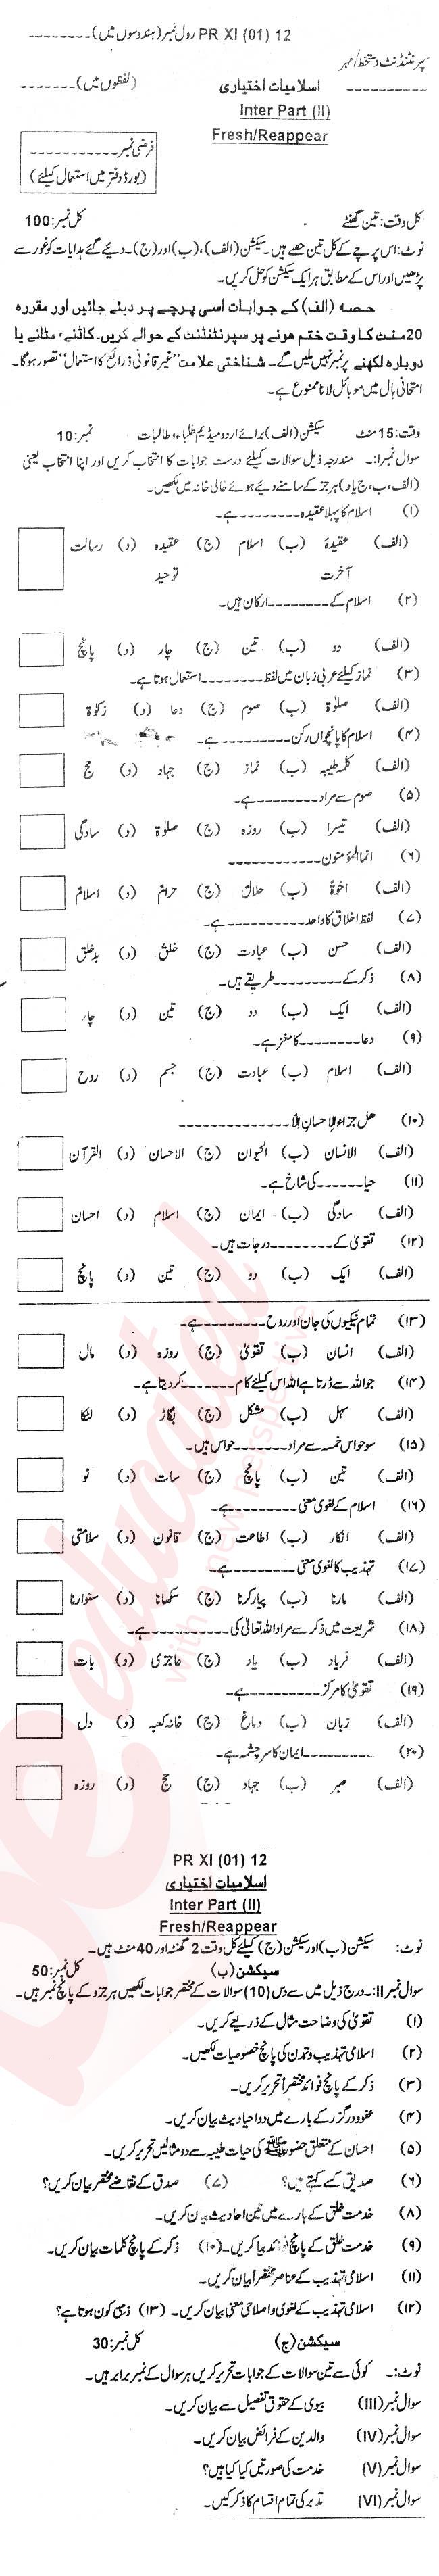 PR XI (01) 12 رول نمبر (ہندسوں میں)ـــــــــ
سپرنٹنڈنٹ دستخط/مہر ـــــــــ
اسلامیات اختیاری
(لفظوں میں)ـــــــــ
Inter Part (II)
Fresh/Reappear
فرضی نمبر ـــــــــ
(بورڈ دفتر میں استعمال کیلئے)
کل وقت: تین گھنٹے کل نمبر: 100
نوٹ: اس پرچے کے کل تین حصے ہیں۔ سیکشن (الف)، (ب) اور (ج)۔ دیئے گئے ہدایات کو غور سے
پڑھیں اور اس کے مطابق ہر ایک سیکشن کو حل کریں۔
حصہ (الف) کے جوابات اسی پرچے پر دیئے جائیں اور مقررہ
20منٹ کا وقت ختم ہونے پر سپرنٹنڈنٹ کے حوالے کریں۔ کاٹنے، مٹانے یا
دوبارہ لکھنے پر نمبر نہیں ملیں گے۔ شناختی علامت "غیر قانونی ذرائع کا استعمال" تصور ہوگا۔
امتحانی ہال میں موبائل لانا ممنوع ہے۔
وقت: 15 منٹ سیکشن (الف) برائے اردو میڈیم طلباء و طالبات نمبر: 10
سوال نمبرا:۔ مندرجہ ذیل سوالات کیلئے درست جوابات کا انتخاب کریں اور اپنا انتخاب یعنی
(الف، ب، ج یا د) ہر جز کے سامنے دیئے ہوئے خالی خانہ میں لکھیں۔
(۱) اسلام کا پہلا عقیدہ ـــــــــ ہے۔
(الف) عقیدۂ آخرت (ب) اسلام (ج) عقیدہ توحید (د) رسالت
(۲) اسلام کے ـــــــــ ارکان ہیں۔
(الف) دو (ب) تین (ج) چار (د) پانچ
(۳) نماز کیلئے عربی زبان میں لفظ ـــــــــ استعمال ہوتا ہے۔
(الف) صلوٰۃ (ب) صوم (ج) دعا (د) زکوٰۃ
(۴) اسلام کا پانچواں رکن ـــــــــ ہے۔
(الف) کلمہ طیبہ (ب) نماز (ج) جہاد (د) حج
(۵) صوم سے مراد ـــــــــ ہے۔
(الف) تیسرا (ب) روزہ (ج) صلوٰۃ (د) سادگی
(۶) انما المؤمنون ـــــــــ
(الف) اخوۃٌ (ب) حلالٌ (ج) حرامٌ (د) اسلامٌ
(۷) لفظ اخلاق کا واحد ـــــــــ ہے۔
(الف) حسن (ب) عبادت (ج) خلق (د) بدخلق
(۸) ذکر کے ـــــــــ طریقے ہیں۔
(الف) ایک (ب) دو (ج) تین (د) چار
(۹) دعا ـــــــــ کا مغز ہے۔
(الف) اسلام (ب) عبادت (ج) جسم (د) روح
(۱۰) ھل جزاء الاحسان الا ـــــــــ
(الف) الانسان (ب) الحیوان (ج) الاحسان (د) القرآن
(۱۱) حیا ـــــــــ کی شاخ ہے۔
(الف) سادگی (ب) ایمان (ج) اسلام (د) احسان
(۱۲) تقویٰ کے ـــــــــ درجات ہیں۔
(الف) ایک (ب) دو (ج) تین (د) پانچ
(۱۳) تمام نیکیوں کی جان اور روح ـــــــــ ہے۔
(الف) انسان (ب) تقویٰ (ج) روزہ (د) مال
(۱۴) جو اللہ سے ڈرتا ہے اللہ اس کیلئے کام ـــــــــ کر دیتا ہے۔
(الف) سہل (ب) مشکل (ج) بگاڑ (د) لٹکا
(۱۵) سو حواس خمسہ سے مراد ـــــــــ حواس ہیں۔
(الف) تین (ب) پانچ (ج) سات (د) نو
(۱۶) اسلام کے لغوی معنی ـــــــــ ہے۔
(الف) انکار (ب) اطاعت (ج) قانون (د) سلامتی
(۱۷) تہذیب کا لغوی معنی ـــــــــ ہے۔
(الف) مارنا (ب) پیار کرنا (ج) سکھانا (د) سنوارنا
(۱۸) شریعت میں ذکر سے مراد اللہ تعالیٰ کی ـــــــــ ہے۔
(الف) فریاد (ب) یاد (ج) عاجزی (د) بات
(۱۹) تقویٰ کا مرکز ـــــــــ ہے۔
(الف) زبان (ب) دماغ (ج) خانہ کعبہ (د) دل
(۲۰) ـــــــــ ایمان کا سرچشمہ ہے۔
(الف) صبر (ب) جہاد (ج) حج (د) روزہ
PR XI (01) 12
اسلامیات اختیاری
Inter Part (II)
Fresh/Reappear
نوٹ: سیکشن (ب) اور سیکشن (ج) کیلئے کل وقت 2 گھنٹہ اور 40 منٹ ہیں۔
سیکشن (ب) کل نمبر: 50
سوال نمبر II:۔ درج ذیل میں سے دس (10) سوالات کے مختصر جوابات لکھیں ہر جزو کے پانچ نمبر ہیں۔
(۱) تقویٰ کی وضاحت مثال کے ذریعے کریں۔
(۲) اسلامی تہذیب و تمدن کی پانچ خصوصیات لکھیں۔
(۳) ذکر کے پانچ فوائد مختصراً تحریر کریں۔
(۴) عفو و درگزر کے بارے میں دو احادیث بیان کریں۔
(۵) احسان کے متعلق حضور ﷺ کی حیات طیبہ سے دو مثالیں تحریر کریں۔
(۶) صدیق کسے کہتے ہیں؟ (۷) صدق کے تقاضے مختصر بیان کریں؟
(۸) خدمت خلق کے بارے میں تین احادیث بیان کریں۔
(۹) خدمت خلق کے پانچ فوائد بیا کریں۔ (۱۰) ذکر کے پانچ کلمات بیان کریں۔
(۱۱) اسلامی تہذیب کے عناصر مختصراً بیان کریں۔
(۱۲) اسلامی تہذیب کے لغوی و اصلاحی معنی بیان کریں۔ (۱۳) ذمی کون ہوتا ہے؟
سیکشن (ج) کل نمبر: 30
نوٹ:۔ کوئی سے تین سوالات کے جوابات تحریر کریں ہر سوال کے نمبر برابر ہیں۔
سوال نمبر (III) بیوی کے حقوق تفصیل سے بیان کریں۔
سوال نمبر (IV) والدین کے فرائض بیان کریں۔
سوال نمبر (V) خدمت کی صورتیں کیا کیا ہیں؟
سوال نمبر (VI) تدبر کی تمام اقسام کا ذکر کیں۔
educated
with a new perspective